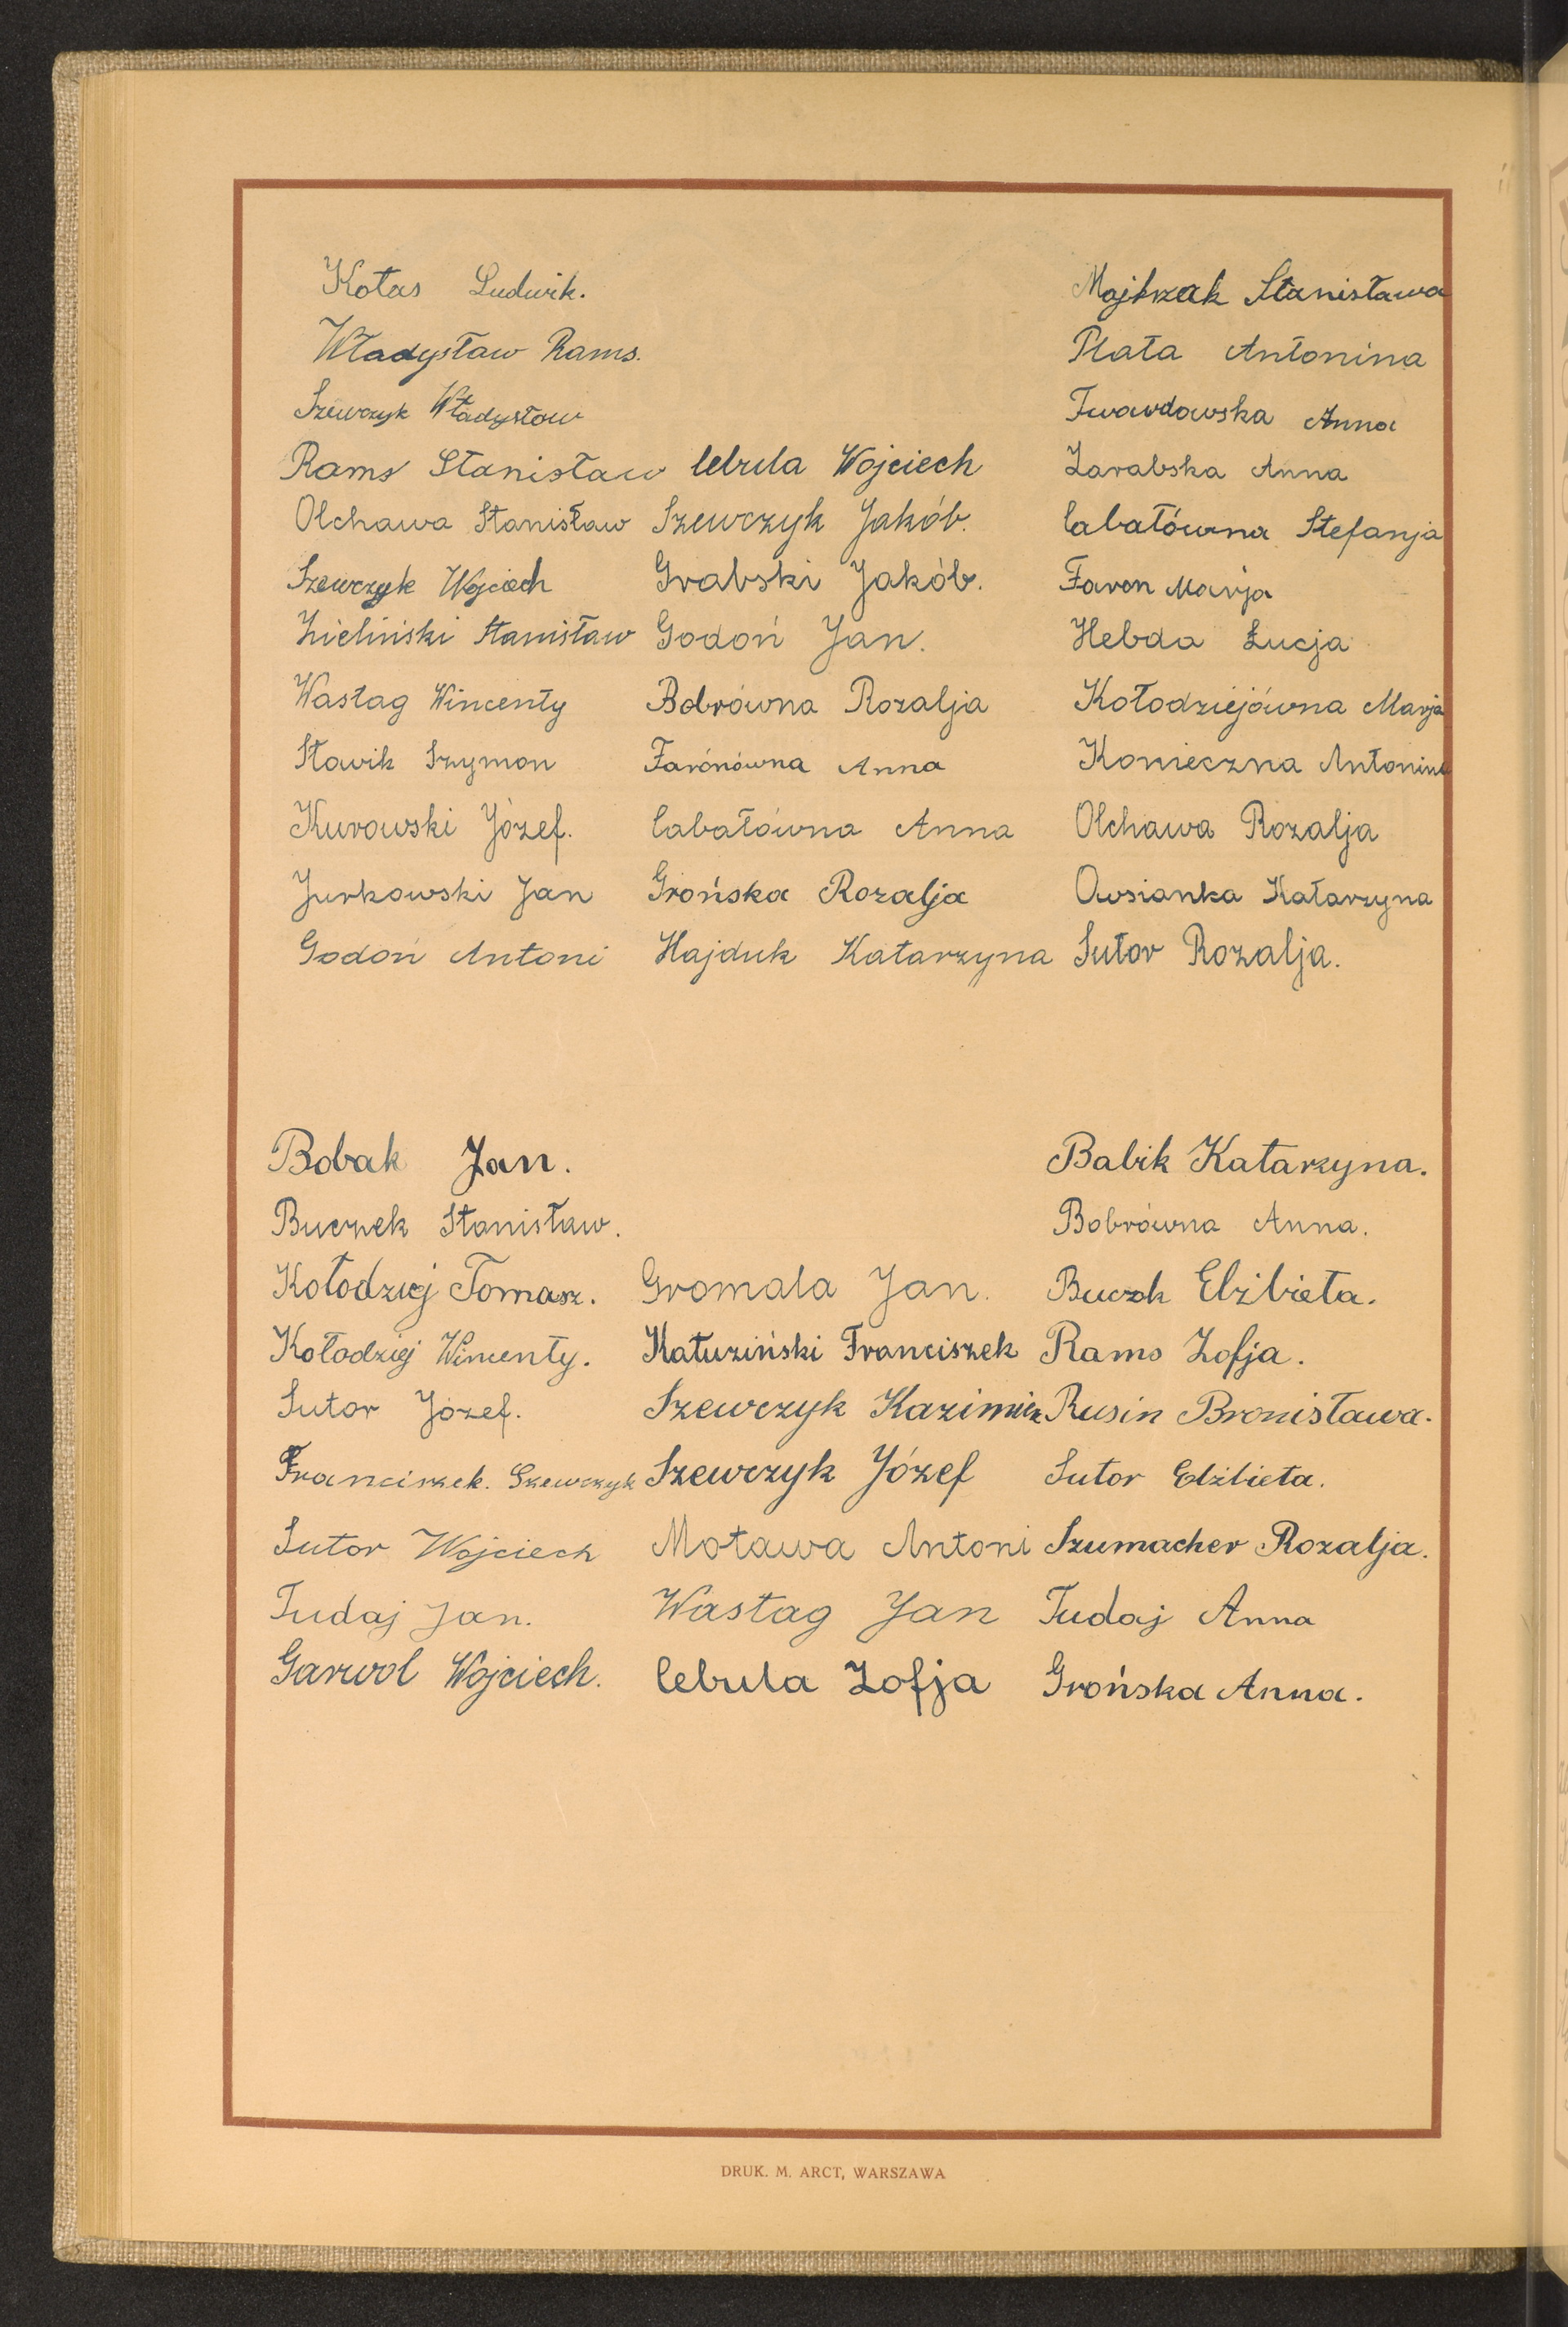 Kotas Ludwik. Majkrzak Stanisława
Władysław Rams. Plata Antonina
Szewczyk Władysław Twardowska Anna
Rams Stanisław Cebula Wojciech Zarabska Anna
Olchawa Stanisław Szewczyk Jakób. Cabałówna Stefanja
Szewczyk Wojciech Grabski Jakób. Faron Marja
Zieliński Stanisław Godoń Jan. Hebda Łucja
Wastag Wincenty Bobrówna Rozalja Kołodziejówna Marja
Sławik Szymon Farónówna Anna Konieczna Antonina
Kurowski Józef. Cabałówna Anna Olchawa Rozalja
Jurkowski Jan Grońska Rozalja Owsianka Katarzyna
Godoń Antoni Hajduk Katarzyna Sutor Rozalja.
Bobak Jan. Babik Katarzyna.
Buczek Stanisław. Bobrówna Anna.
Kołodziej Tomasz. Gromala Jan. Buczek Elżbieta.
Kołodziej Wincenty. Kałuziński Franciszek Rams Zofja.
Sutor Józef. Szewczyk Kazimierz Rusin Bronisława.
Franciszek. Szewczyk Szewczyk Józef Sutor Elżbieta.
Sutor Wojciech Motawa Antoni Szumacher Rozalja.
Tudaj Jan. Wastag Jan Tudaj Anna
Garwol Wojciech. Cebula Zofja Grońska Anna.
DRUK. M. ARCT, WARSZAWA